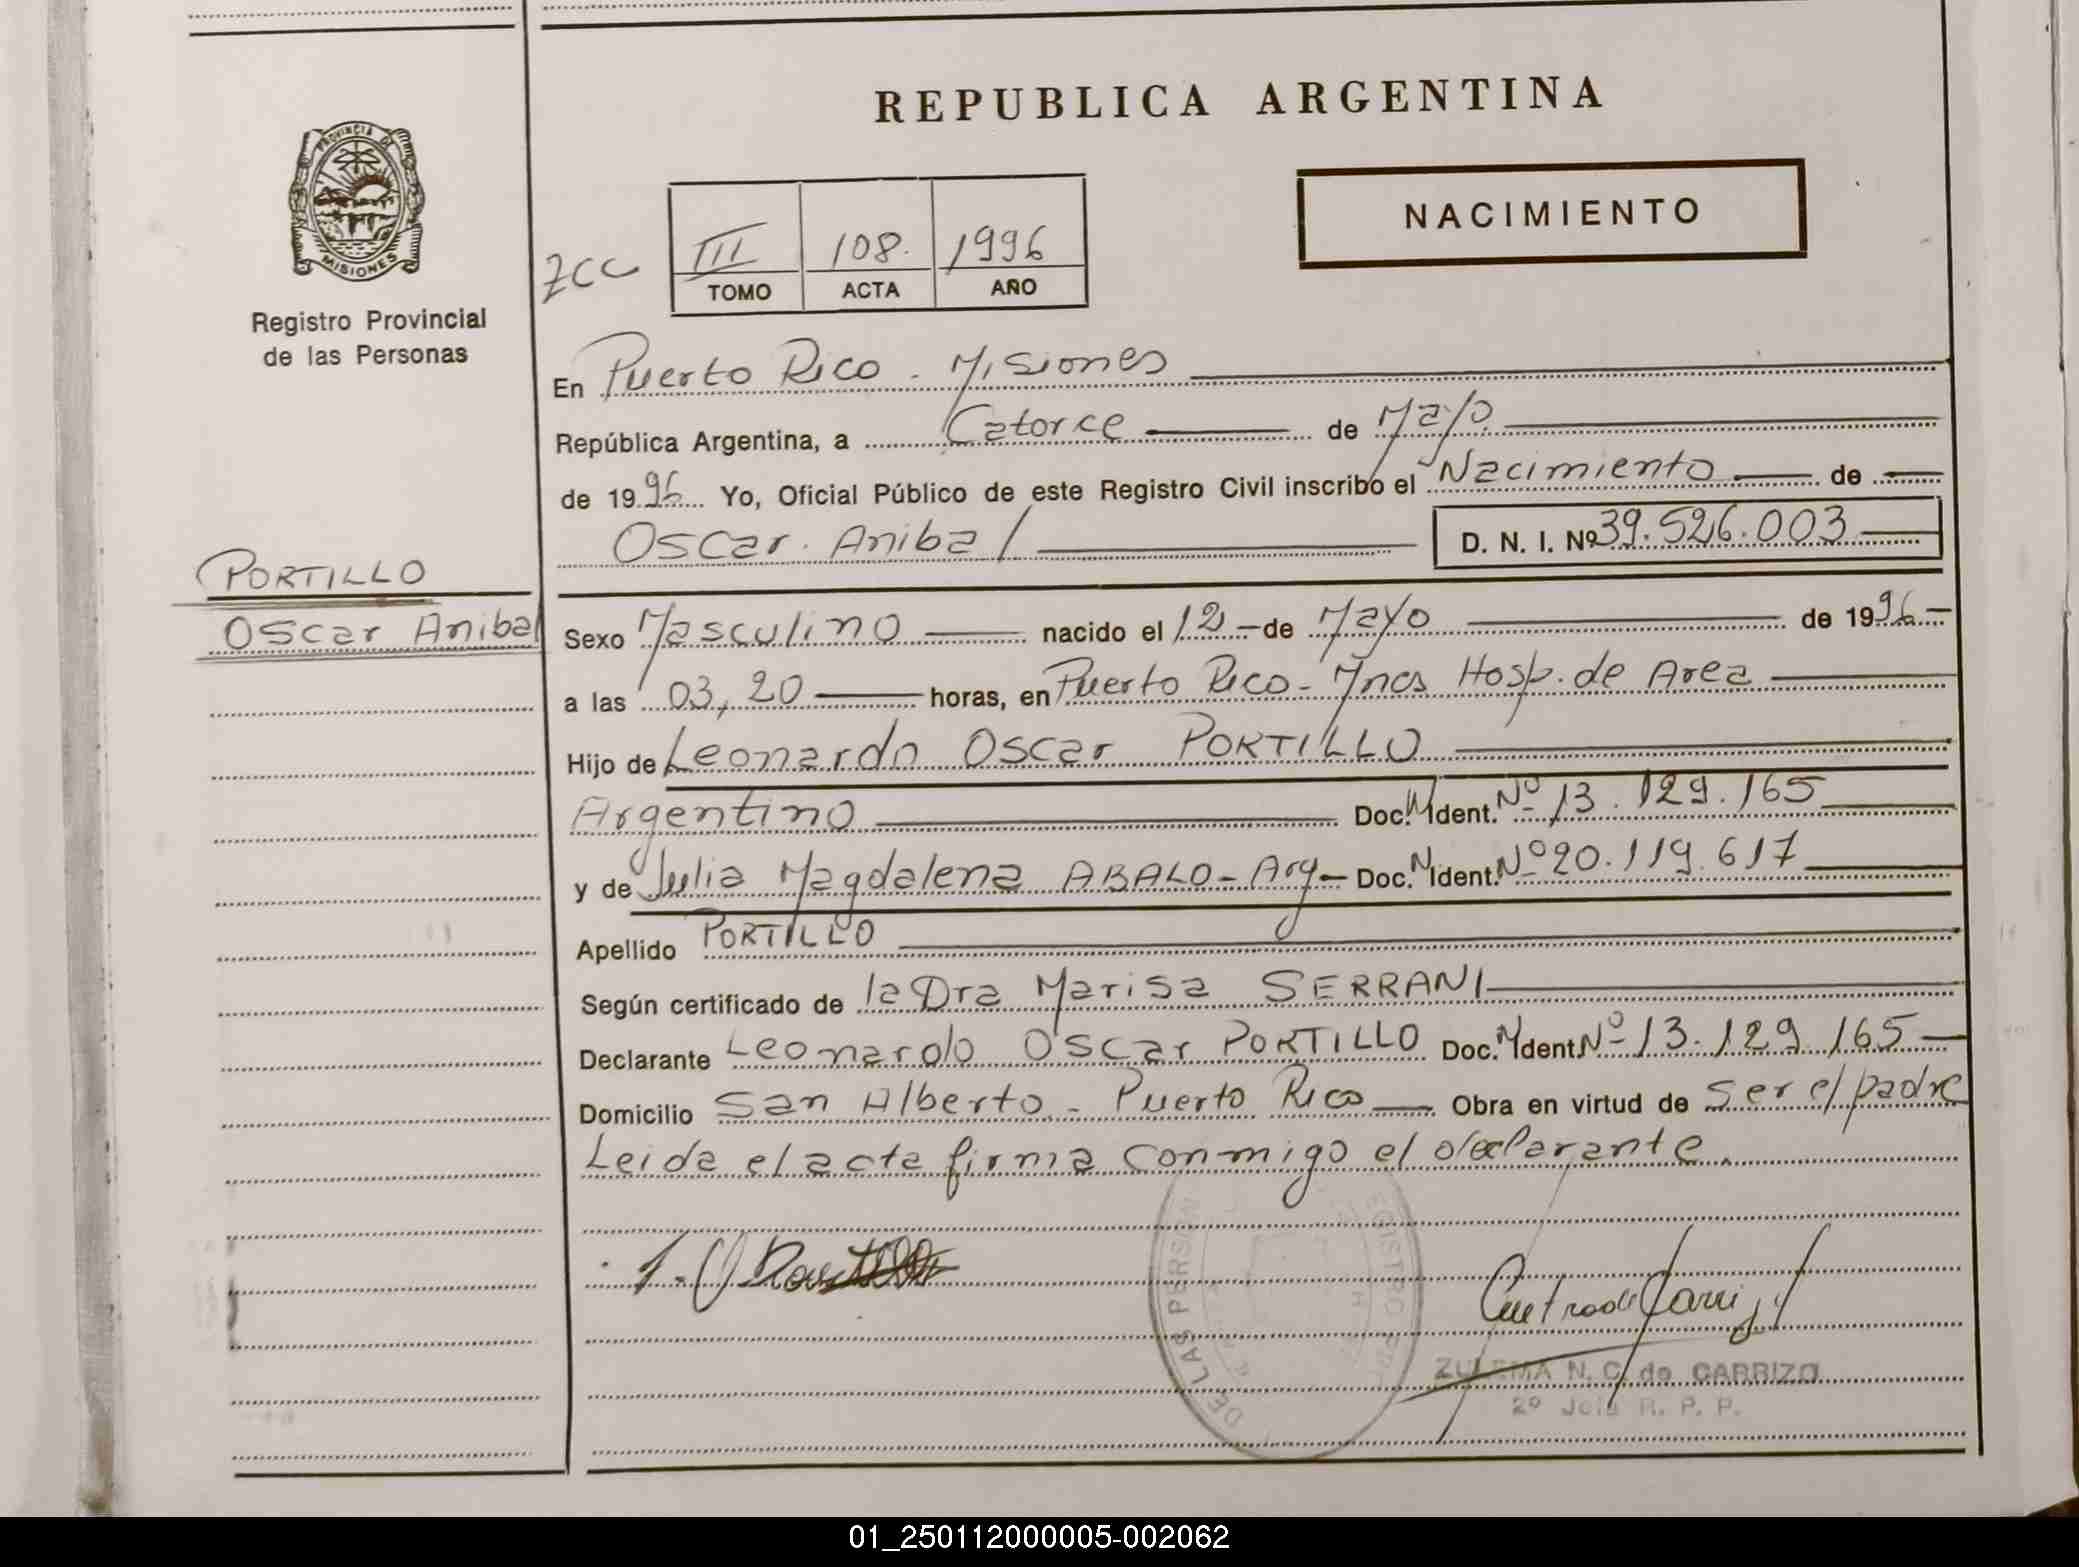 REPUBLICA ARGENTINA
PROVINCIA DE MISIONES
Registro Provincial
de las Personas
NACIMIENTO
III 108. 1996
TOMO ACTA AÑO
En Puerto Rico - Misiones
República Argentina, a Catorce de Mayo
de 1996 Yo, Oficial Público de este Registro Civil inscribo el Nacimiento de
Oscar Anibal D. N. I. Nº 39.526.003
PORTILLO
Oscar Anibal
Sexo Masculino nacido el 12 de Mayo de 1996
a las 03,20 horas, en Puerto Rico - Mnes Hosp. de Area
Hijo de Leonardo Oscar PORTILLO
Argentino Doc. N Ident. Nº 13.129.165
y de Julia Magdalena ABALO - Arg - Doc. N Ident. Nº 20.119.617
Apellido PORTILLO
Según certificado de la Dra Marisa SERRANI
Declarante Leonardo Oscar PORTILLO Doc. N Ident. Nº 13.129.165
Domicilio San Alberto - Puerto Rico Obra en virtud de ser el padre
Leida el acta firma conmigo el declarante.
DE LAS PERSON
ZULEMA N. C. de CARRIZO
2º Jefa R. P. P.
01_250112000005-002062